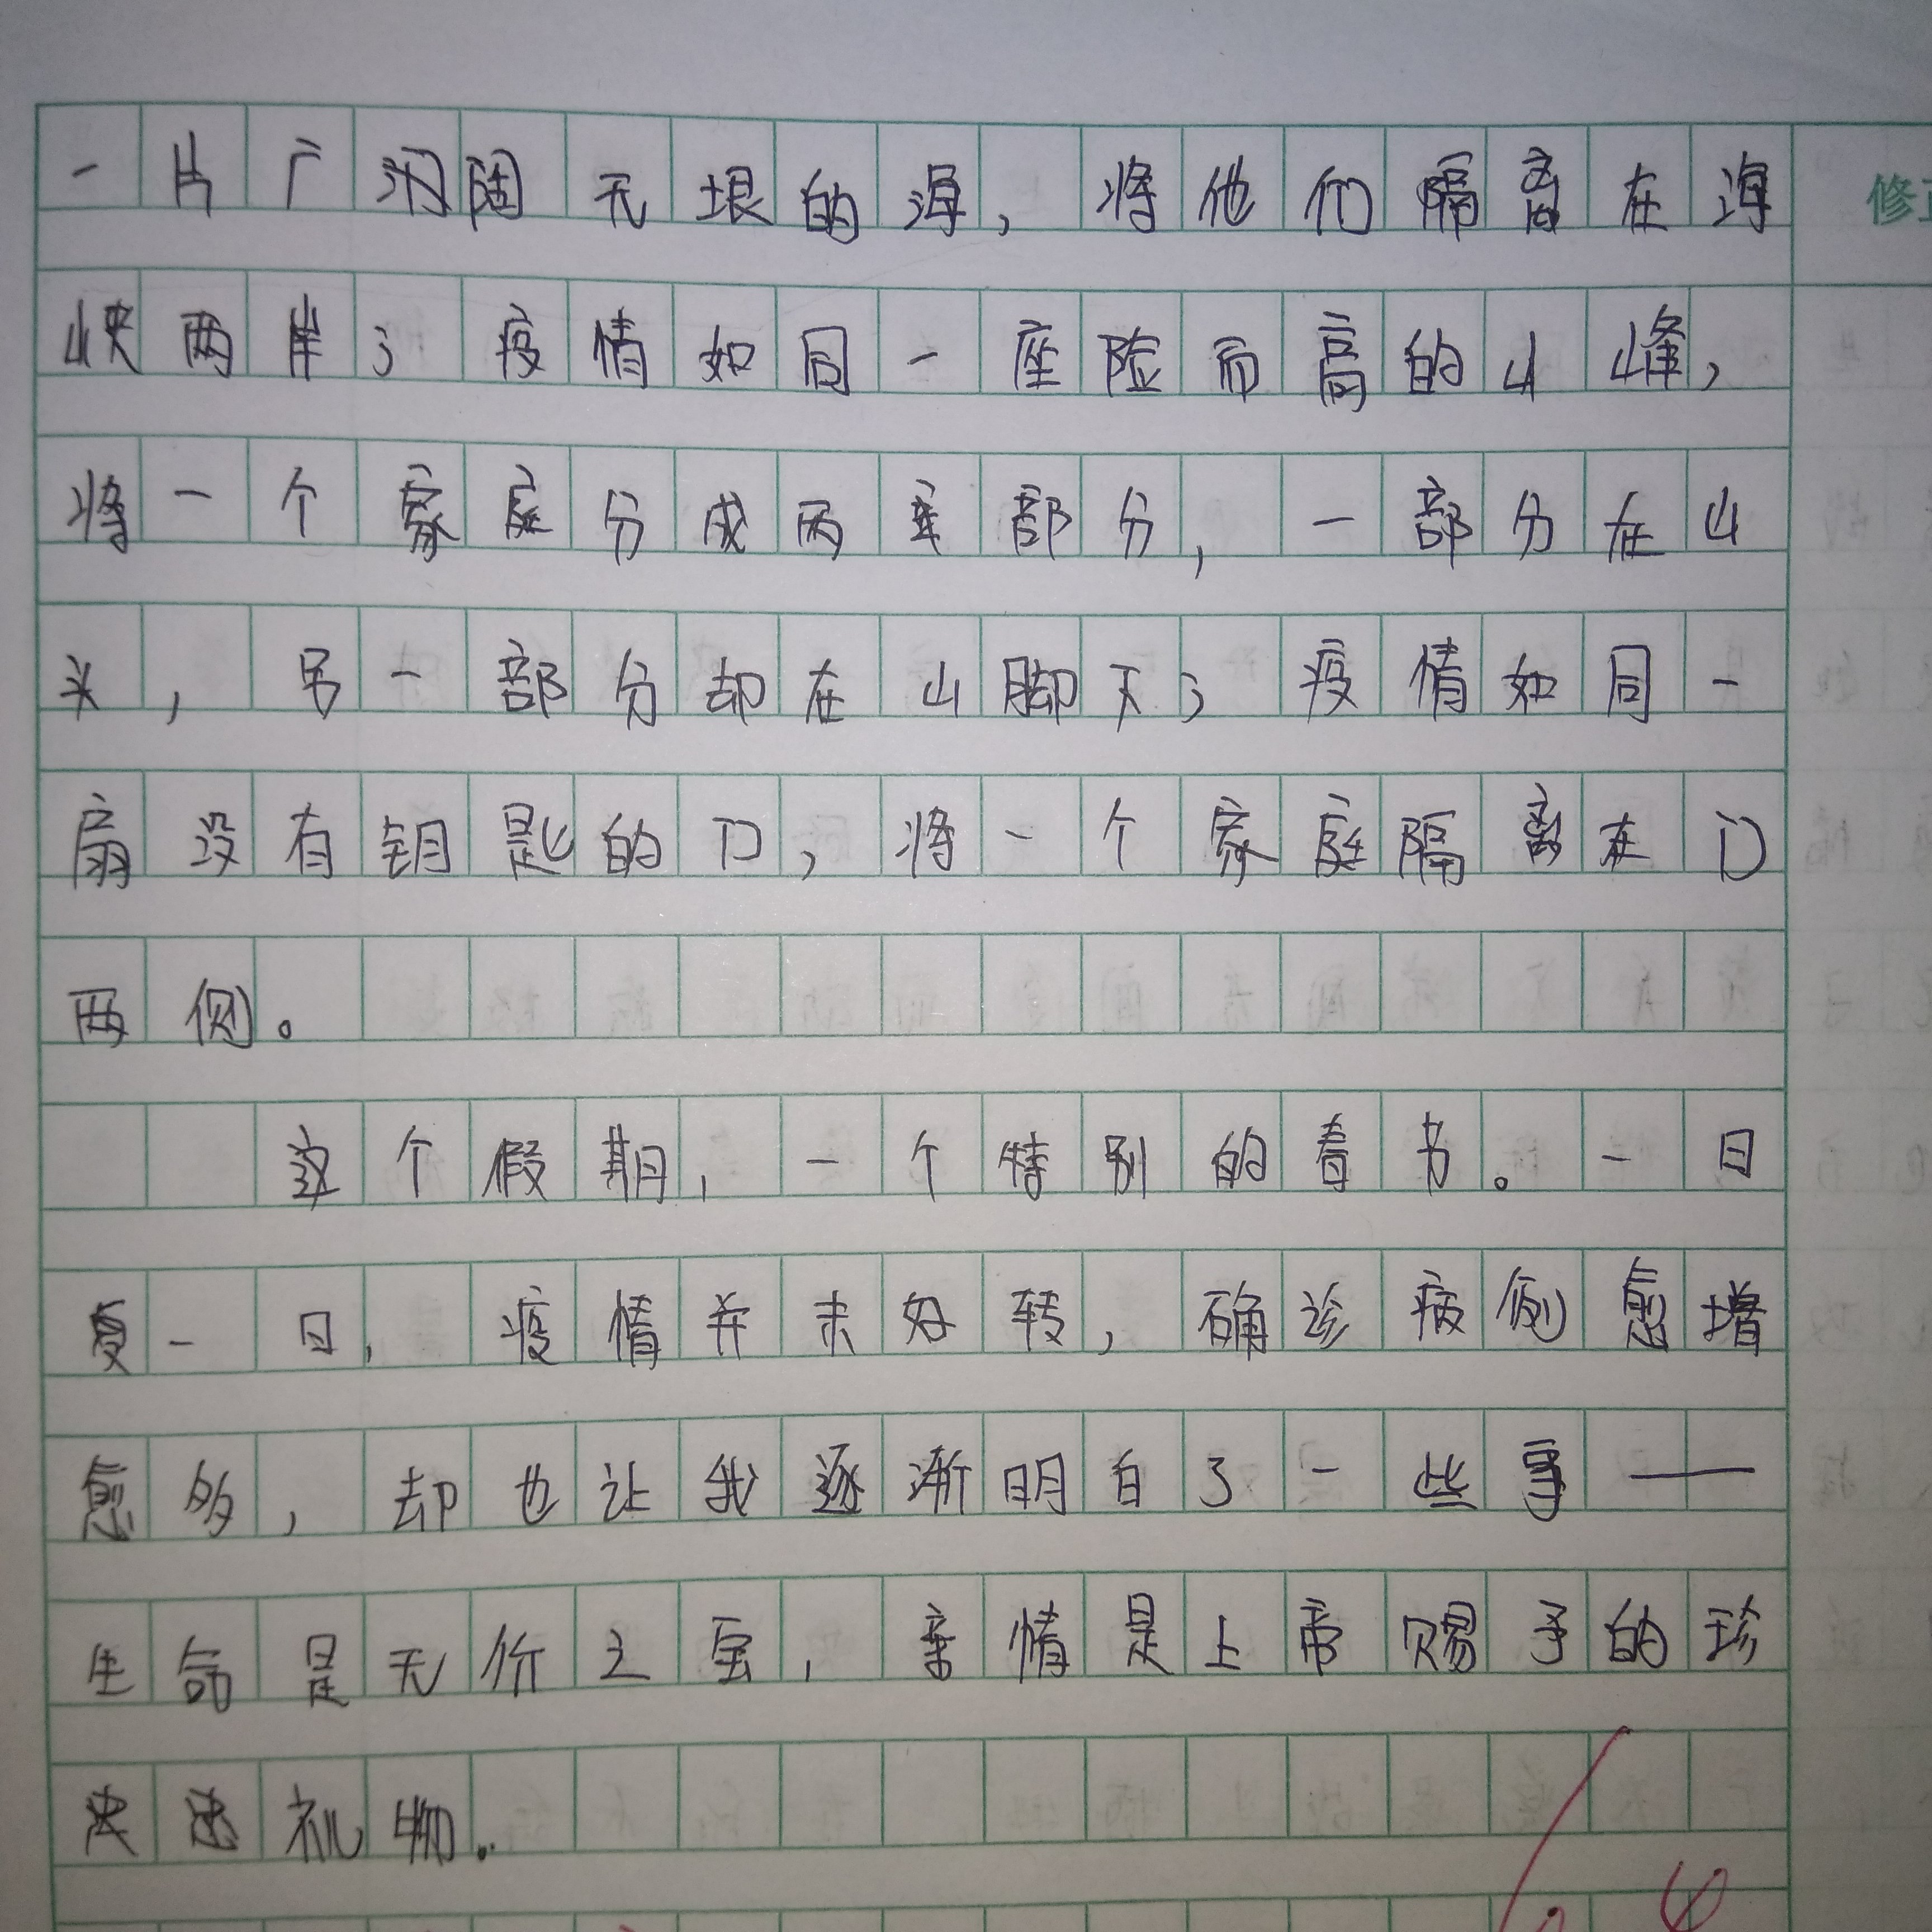 一片广阔无垠的海，将他们隔离在海
修正
峡两岸；疫情如同一座险而高的山峰，
将一个家庭分成两部分，一部分在山
头，另一部分却在山脚下；疫情如同一
扇没有钥匙的门，将一个家庭隔离在门
两侧。
这个假期，一个特别的春节。一日
复一日，疫情并未好转，确诊病例愈增
愈多，却也让我逐渐明白了一些事——
生命是无价之宝，亲情是上帝赐予的珍
礼物。